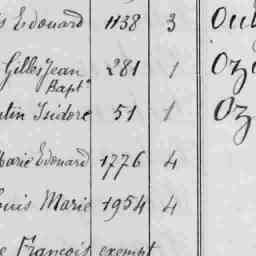 Edouard 1138 3
Gilles Jean 281 1
Bapte
Isidore 51 1
Marie Edouard 1776 4
Louis Marie 1954 4
François exempt